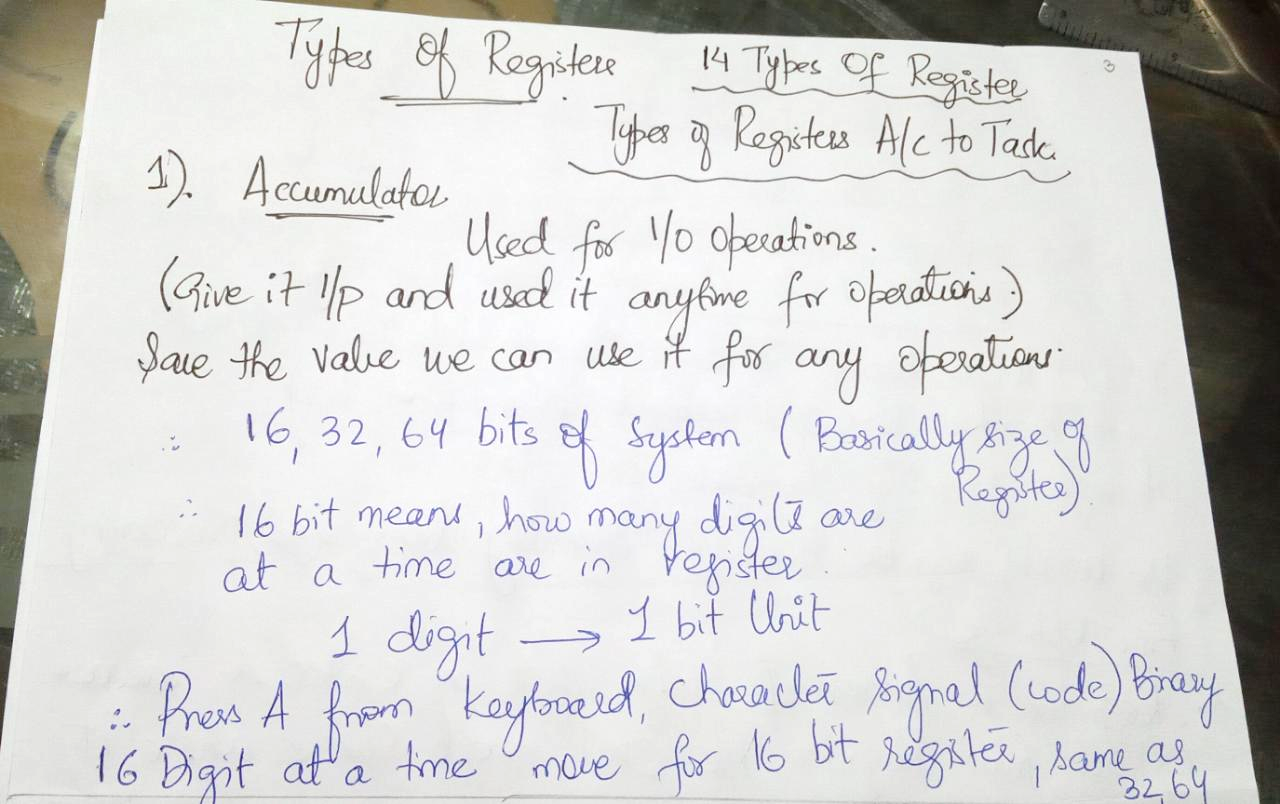 Types Of Registers
14 Types Of Register
3
Types of Registers A/c to Task.
1). Accumulator
Used for I/O Operations.
(Give it I/p and used it anytime for operations.)
Save the value we can use it for any operations.
∴ 16, 32, 64 bits of System (Basically size of
Register)
∴ 16 bit means, how many digits are
at a time are in register.
1 digit → 1 bit Unit
∴ Press A from Keyboard, Character Signal (code) Binary
16 Digit at a time move for 16 bit register, same as
32, 64